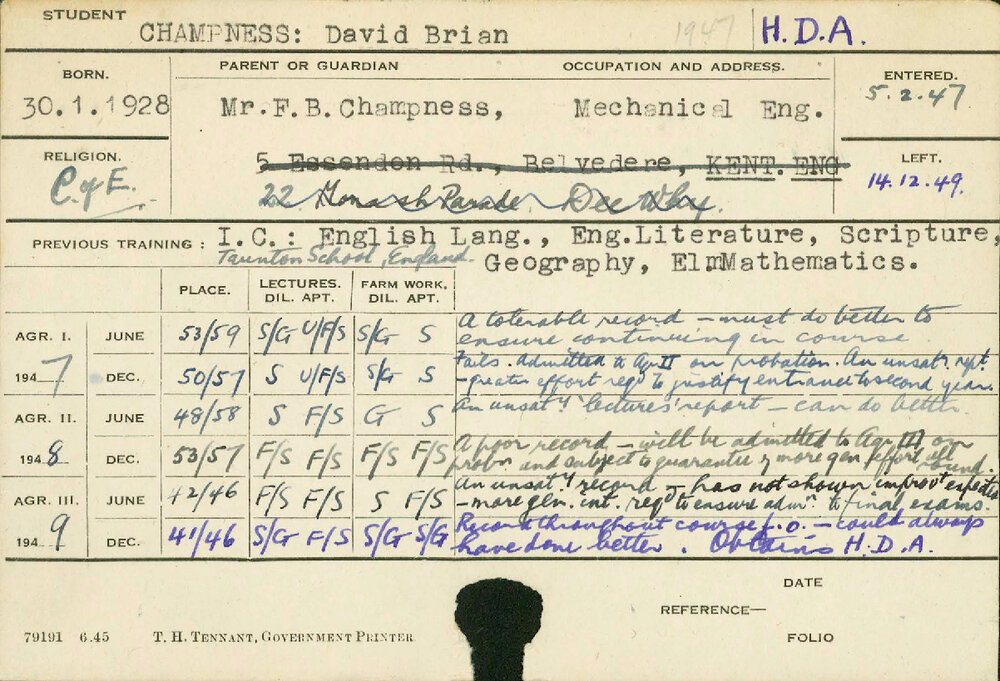 STUDENT
CHAMPNESS: David Brian 1947 H.D.A.
BORN. PARENT OR GUARDIAN OCCUPATION AND ADDRESS. ENTERED.
30.1.1928 Mr.F.B.Champness, Mechanical Eng. 5.2.47
RELIGION. 5 Essendon Rd., Belvedere, KENT. ENG LEFT.
C of E. 22 Monash Parade Dee Why. 14.12.49.
PREVIOUS TRAINING : I.C.: English Lang., Eng.Literature, Scripture,
Taunton School, England. Geography, Elm Mathematics.
PLACE. LECTURES. DIL. APT. FARM WORK, DIL. APT.
AGR. I. JUNE 53/59 S/G U/F/S S/G S A tolerable record – must do better to
ensure continuing in course
1947 DEC. 50/57 S U/F/S S/G S Fails. Admitted to Agr II on probation. An unsaty rept.
– greater effort reqd to justify entrance to second year.
AGR. II. JUNE 48/58 S F/S G S An unsaty 'lectures' report – can do better.
1948 DEC. 53/57 F/S F/S F/S F/S A poor record – will be admitted to Agr III on
probn and subject to guarantee of more gen effort all round.
AGR. III. JUNE 42/46 F/S F/S S F/S An unsaty record – has not shown improvt expected
– more gen. int. reqd to ensure admn to final exams.
1949 DEC. 41/46 S/G F/S S/G S/G Record throughout course – could always
have done better. Obtains H.D.A.
DATE
REFERENCE—
79191 6.45 T. H. TENNANT, GOVERNMENT PRINTER FOLIO